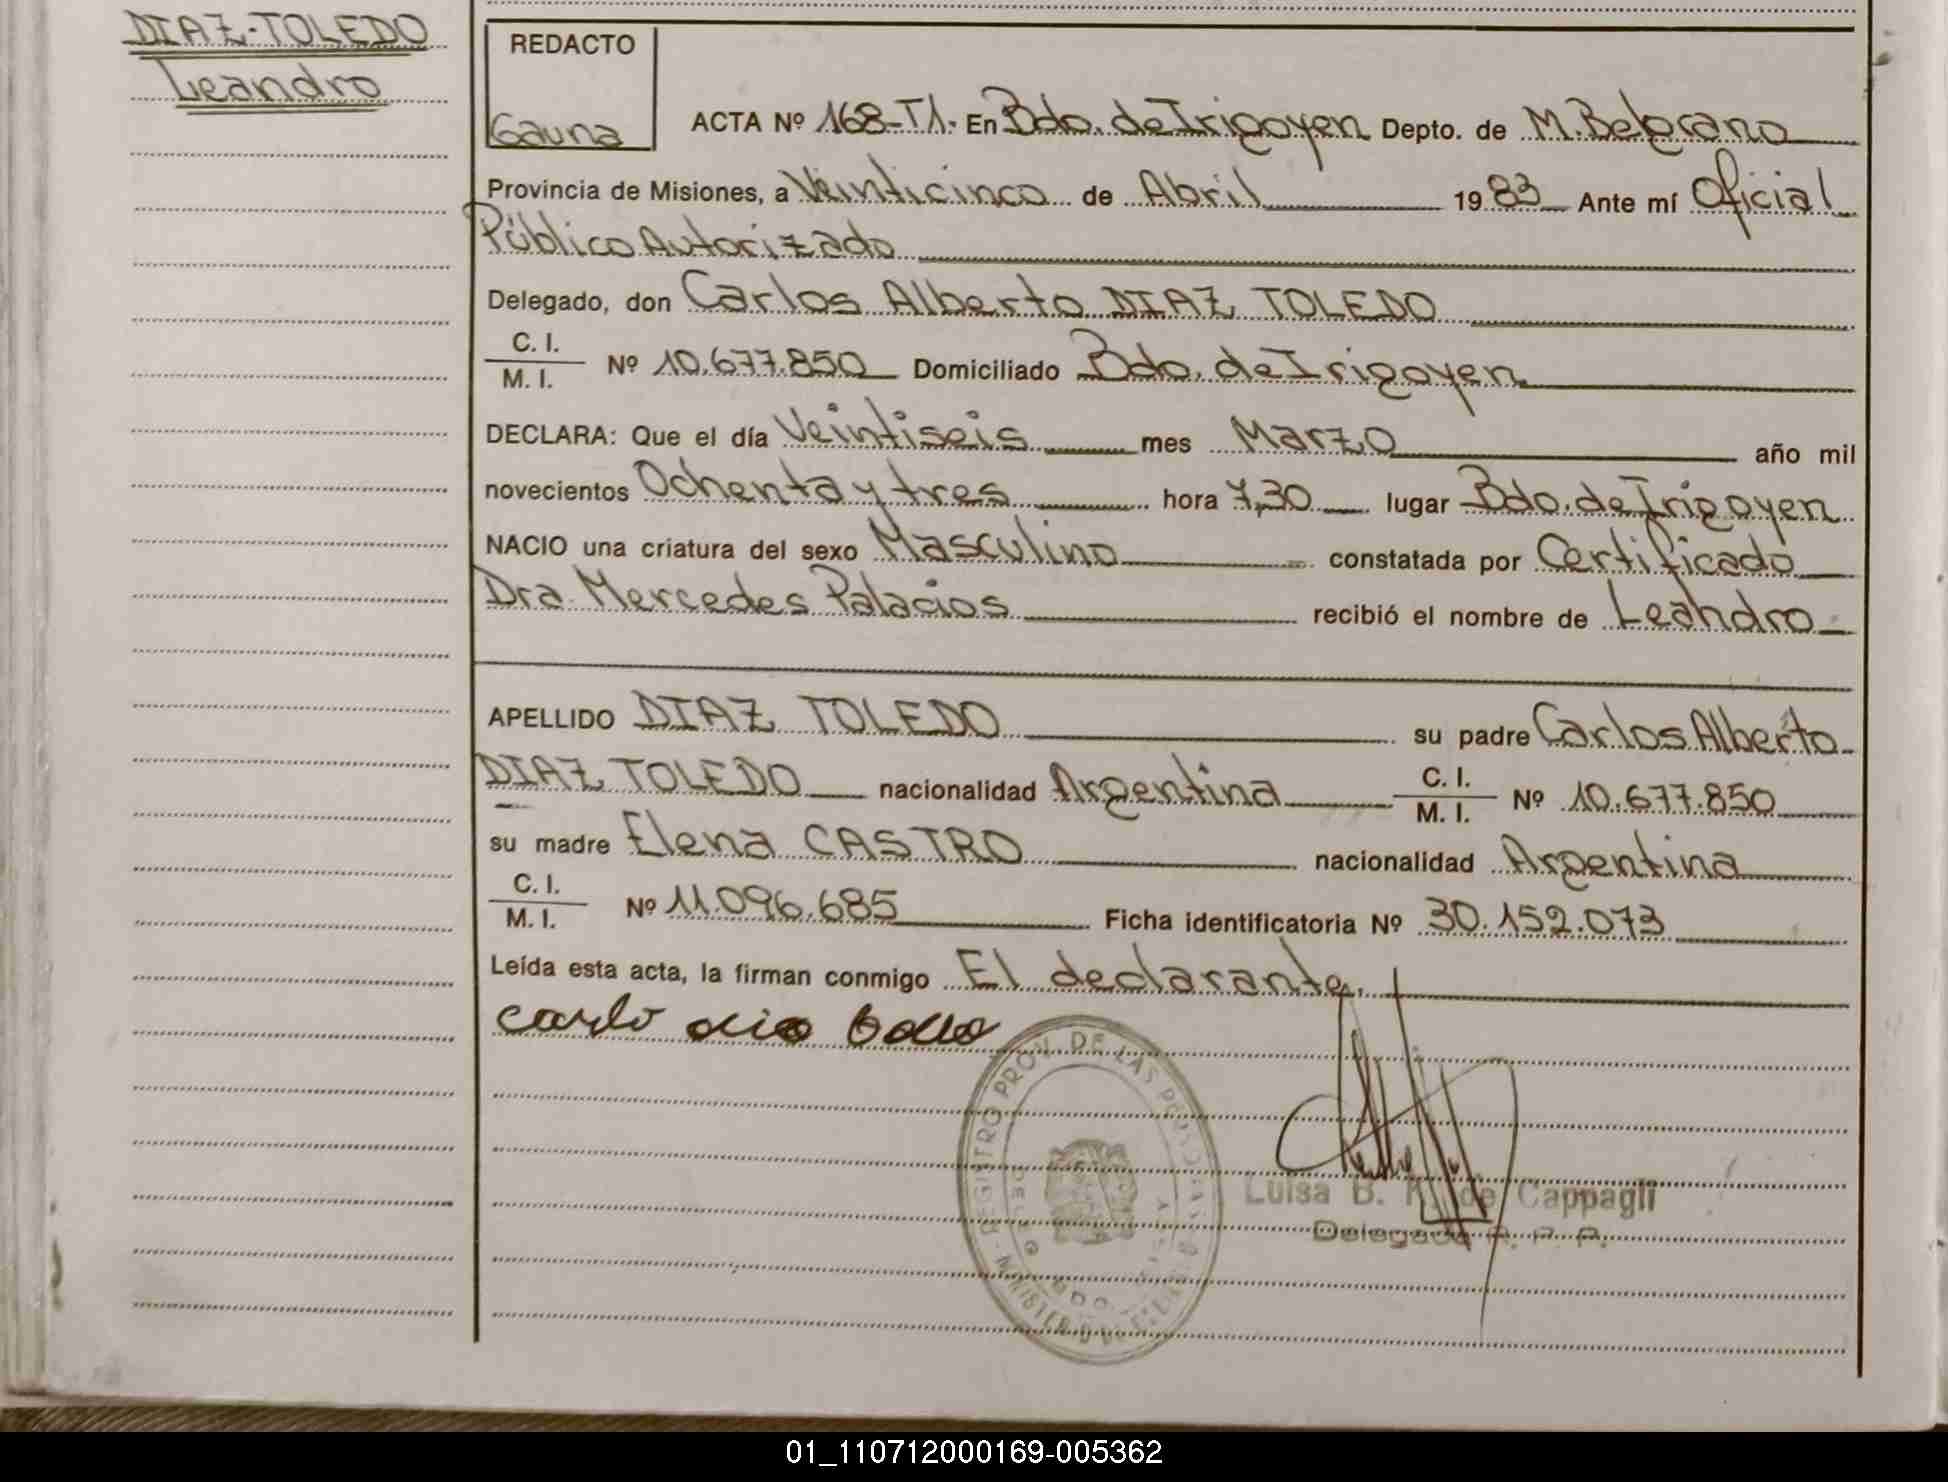 DIAZ-TOLEDO
Leandro
REDACTO
Gauna
ACTA Nº 168-T1. En Bdo. de Irigoyen Depto. de M. Belgrano
Provincia de Misiones, a Veinticinco de Abril 1983 Ante mí Oficial
Público Autorizado
Delegado, don Carlos Alberto DIAZ TOLEDO
C. I.
M. I. Nº 10.677.850 Domiciliado Bdo. de Irigoyen
DECLARA: Que el día Veintiseis mes Marzo año mil
novecientos Ochenta y tres hora 7,30 lugar Bdo. de Irigoyen
NACIO una criatura del sexo Masculino constatada por Certificado
Dra. Mercedes Palacios recibió el nombre de Leandro
APELLIDO DIAZ TOLEDO su padre Carlos Alberto
DIAZ TOLEDO nacionalidad Argentina C. I. M. I. Nº 10.677.850
su madre Elena CASTRO nacionalidad Argentina
C. I.
M. I. Nº 11.096.685 Ficha identificatoria Nº 30.152.073
Leída esta acta, la firman conmigo El declarante.
REGISTRO PROV. DE LAS
Luisa B. K. de Cappagli
Delegada R. P. P.
01_110712000169-005362